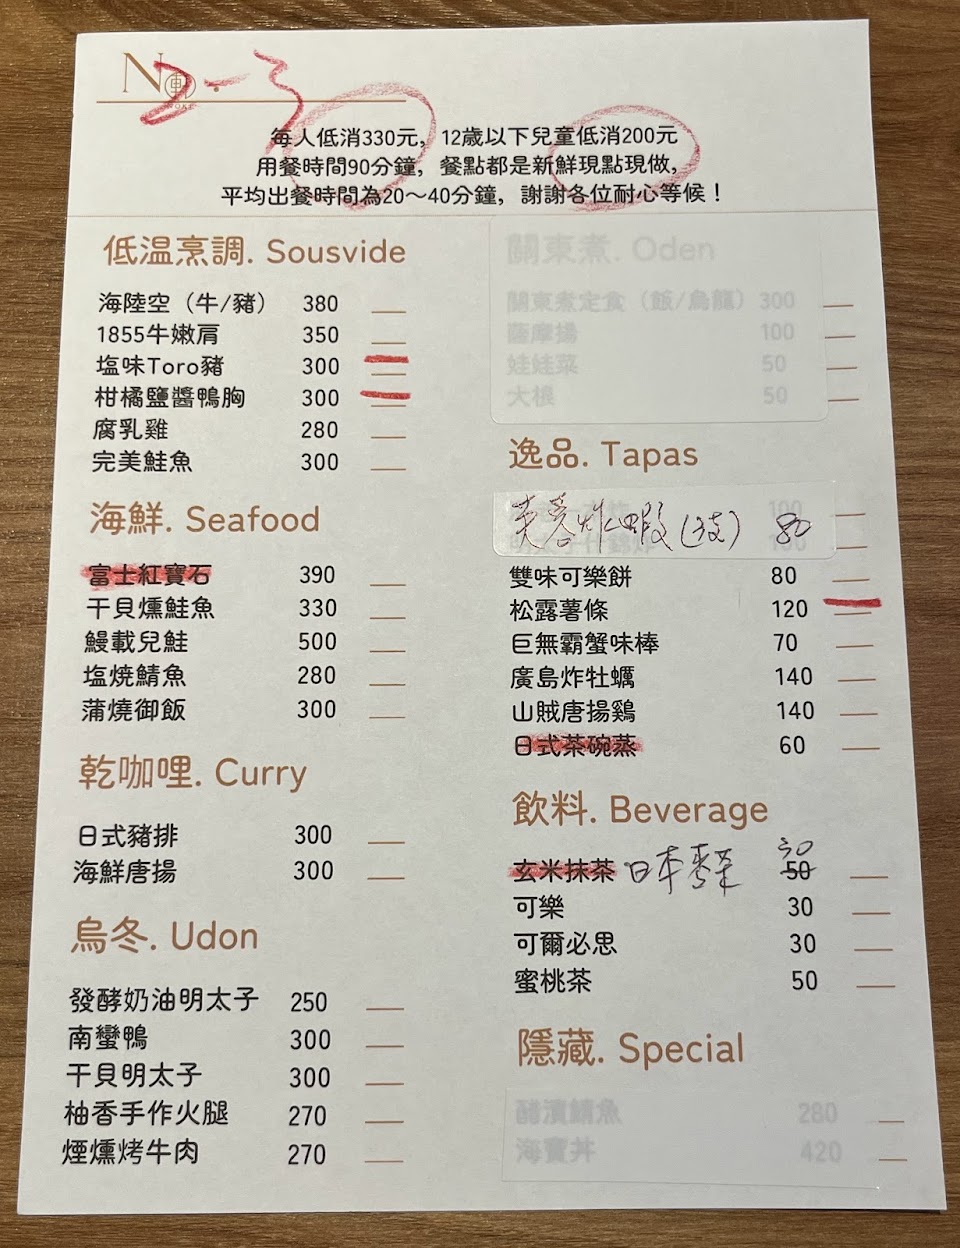 N 軒
2-3
每人低消330元，12歲以下兒童低消200元
用餐時間90分鐘，餐點都是新鮮現點現做，
平均出餐時間為20～40分鐘，謝謝各位耐心等候！
低温烹調. Sousvide
海陸空（牛/豬） 380
1855牛嫩肩 350
塩味Toro豬 300
柑橘鹽醬鴨胸 300
腐乳雞 280
完美鮭魚 300
海鮮. Seafood
富士紅寶石 390
干貝燻鮭魚 330
鰻載兒鮭 500
塩焼鯖魚 280
蒲燒御飯 300
乾咖哩. Curry
日式豬排 300
海鮮唐揚 300
烏冬. Udon
發酵奶油明太子 250
南蠻鴨 300
干貝明太子 300
柚香手作火腿 270
煙燻烤牛肉 270
關東煮. Oden
關東煮定食（飯/烏龍）300
薩摩揚 100
娃娃菜 50
大根 50
逸品. Tapas
芙蓉炸蝦(3支) 80
雙味可樂餅 80
松露薯條 120
巨無霸蟹味棒 70
廣島炸牡蠣 140
山賊唐揚鷄 140
日式茶碗蒸 60
飲料. Beverage
玄米抹茶 日本麥茶 50 30
可樂 30
可爾必思 30
蜜桃茶 50
隱藏. Special
醋漬鯖魚 280
海寶丼 420